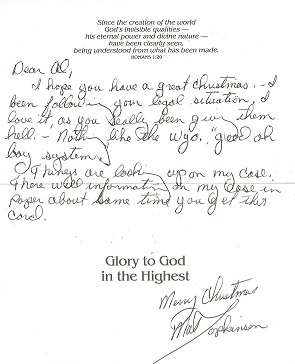 Since the creation of the world
God's invisible qualities —
his eternal power and divine nature —
have been clearly seen,
being understood from what has been made.
ROMANS 1:20
Dear Al,
I hope you have a great Christmas. - I
been following your legal situation, I
love it as you really been giving them
hell. - Nothing like the Wgo. "good oh
boy system."
Things are looking up on my case.
There will information on my case in
paper about same time you get this
card.
Glory to God
in the Highest
Merry Christmas